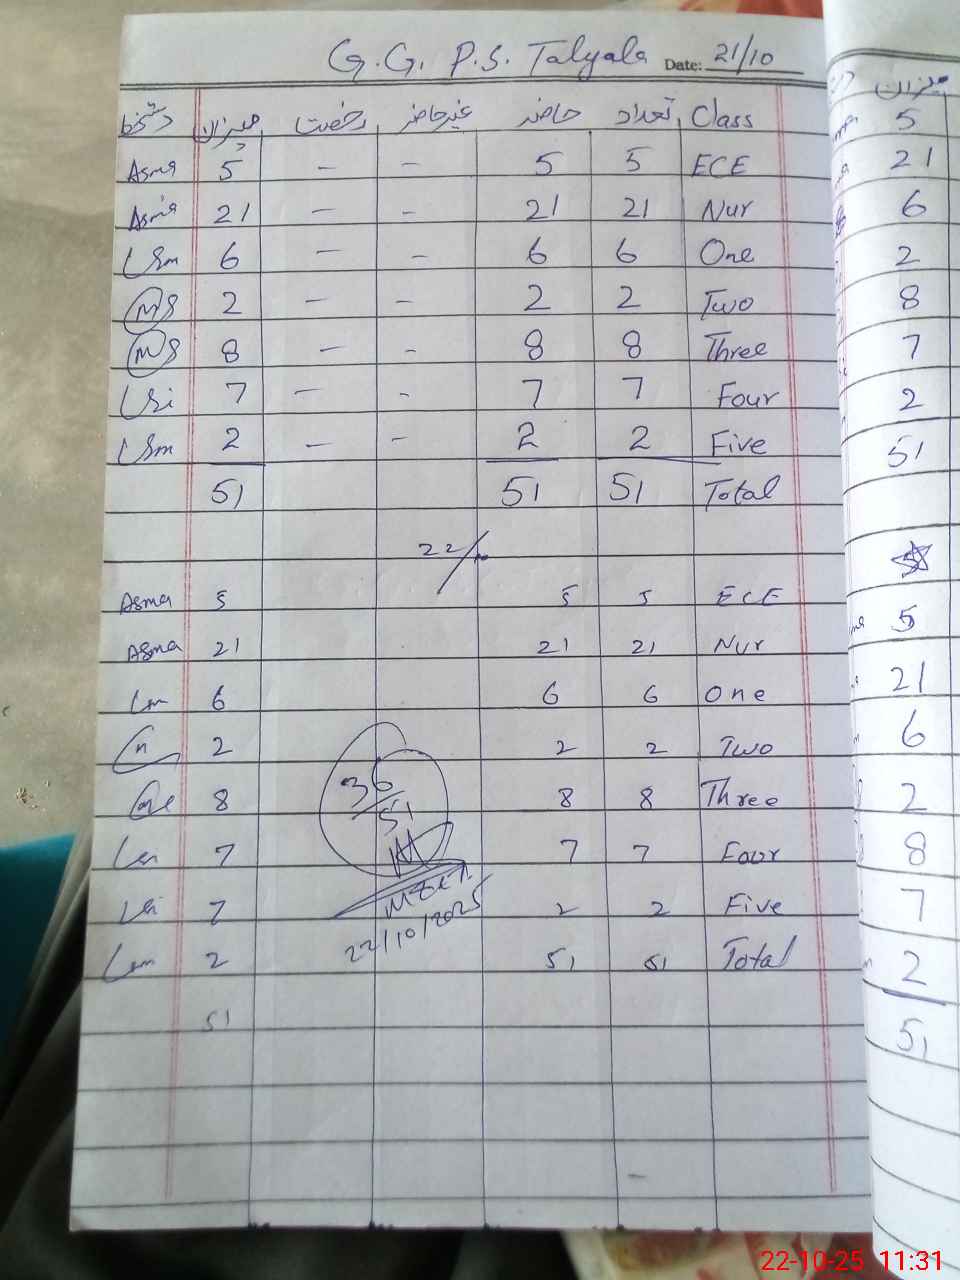 G.G. P.S. Talyala Date: 21/10
دستخط میزان رخصت غیرحاضر حاضر تعداد Class
Asma 5 — — 5 5 ECE
Asma 21 — - 21 21 Nur
6 — - 6 6 One
2 — - 2 2 Two
8 — - 8 8 Three
7 — - 7 7 Four
2 — - 2 2 Five
51 51 51 Total
22/10
Asma 5 5 5 ECE
Asma 21 21 21 Nur
6 6 6 One
2 2 2 Two
8 8 8 Three
7 7 7 Four
7 2 2 Five
2 51 51 Total
51
36/51
22/10/2025
میزان
5
21
6
2
8
7
2
51
5
21
6
2
8
7
2
51
22-10-25 11:31